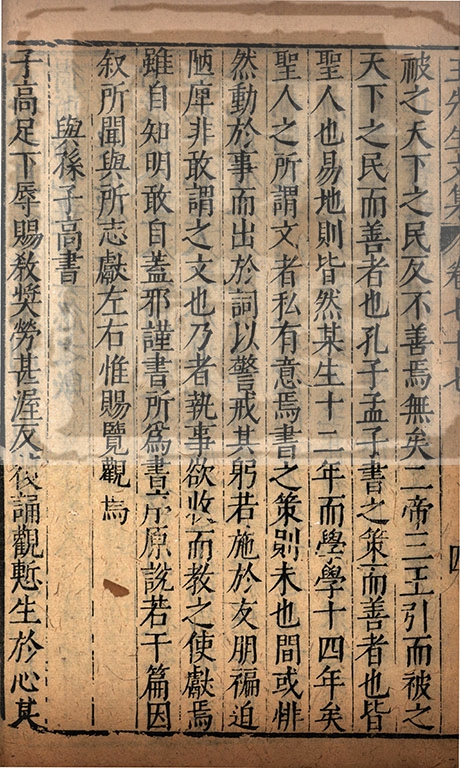 王先生文集 卷七十七 四
被之天下之民反不善焉無矣二帝三王引而被之
天下之民而善者也孔子孟子書之策而善者也皆
聖人也易地則皆然某生十二年而學學十四年矣
聖人之所謂文者私有意焉書之策則未也間或悱
然動於事而出於詞以警戒其躬若施於友朋褊迫
陋庳非敢謂之文也乃者執事欲收而教之使獻焉
雖自知明敢自蓋邪謹書所爲書序原說若干篇因
叙所聞與所志獻左右惟賜覽觀焉
與孫子高書
子高足下辱賜教奬勞甚渥反復誦觀慙生於心其